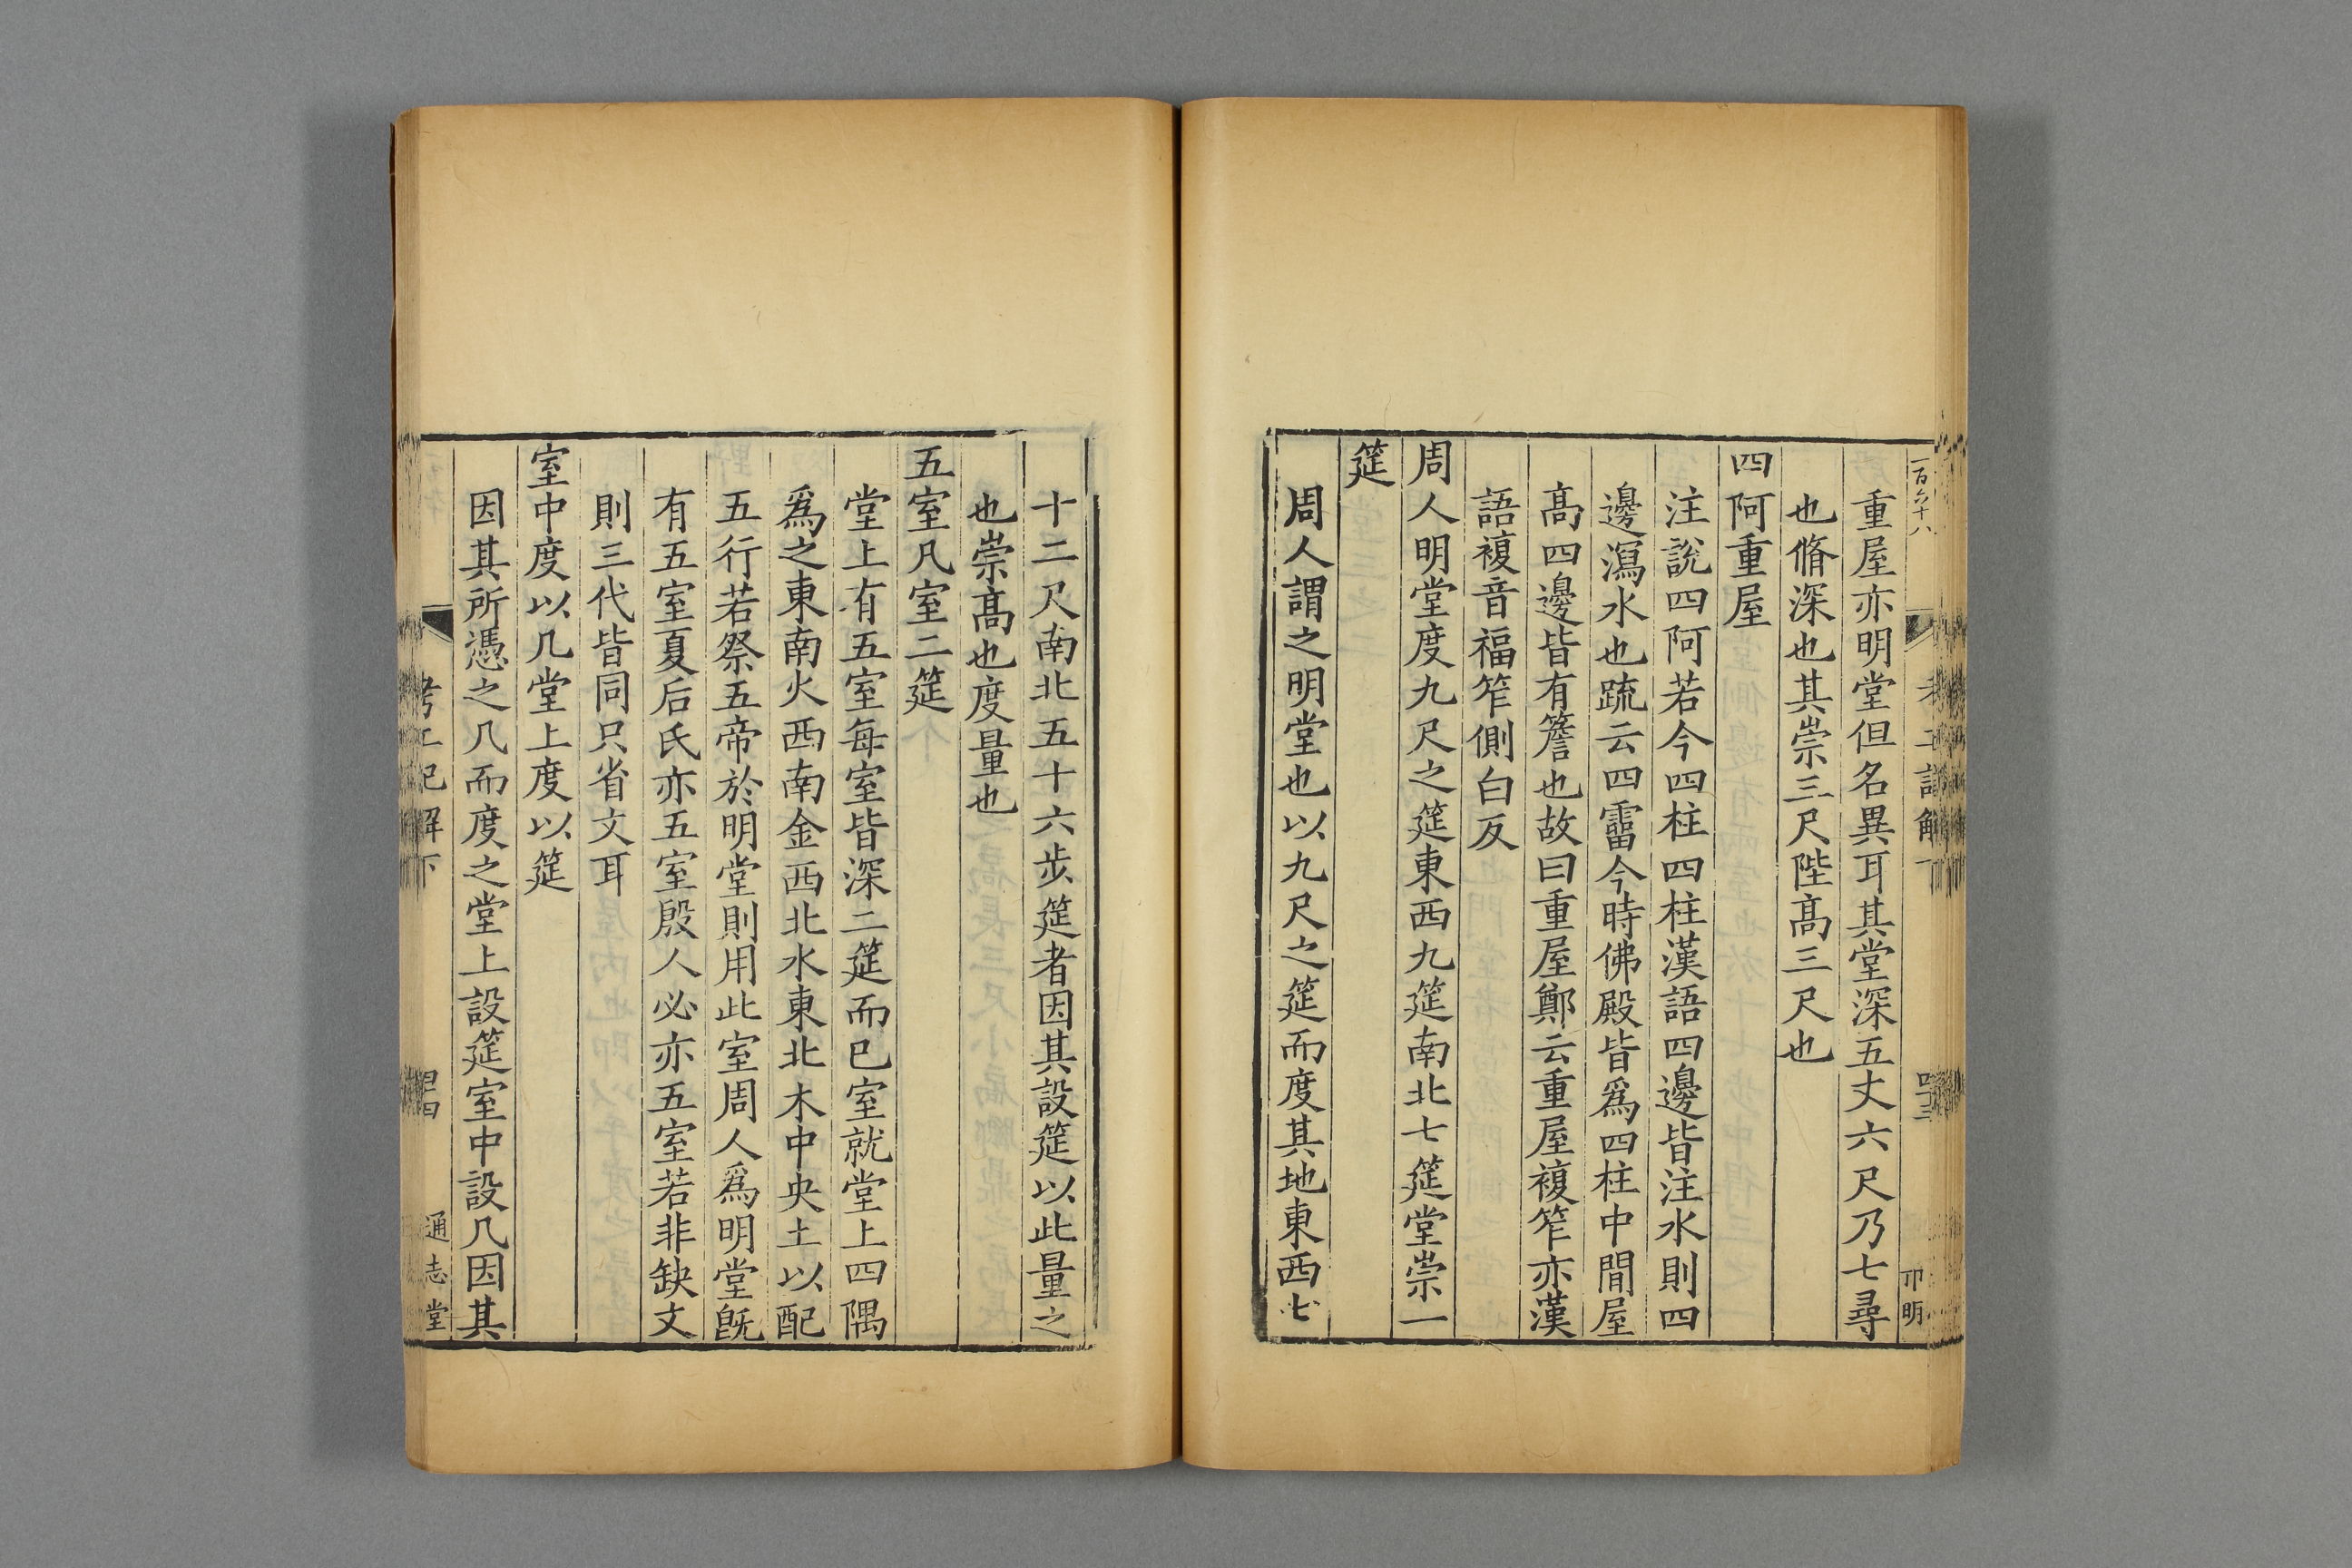 一百六十八
重屋亦明堂但名異耳其堂深五丈六尺乃七尋
也脩深也其崇三尺陛髙三尺也
四阿重屋
注說四阿若今四柱四柱漢語四邊皆注水則四
邊瀉水也䟽云四霤今時佛殿皆爲四柱中間屋
髙四邊皆有簷也故曰重屋鄭云重屋複笮亦漢
語複音福笮側白反
周人明堂度九尺之筵東西九筵南北七筵堂崇一
筵
周人謂之明堂也以九尺之筵而度其地東西七
十二尺南北五十六步筵者因其設筵以此量之
也崇髙也度量也
五室凡室二筵
堂上有五室每室皆深二筵而已室就堂上四隅
爲之東南火西南金西北水東北木中央土以配
五行若祭五帝於明堂則用此室周人爲明堂旣
有五室夏后氏亦五室殷人必亦五室若非缺文
則三代皆同只省文耳
室中度以几堂上度以筵
因其所憑之几而度之堂上設筵室中設几因其
考工記解下
通志堂